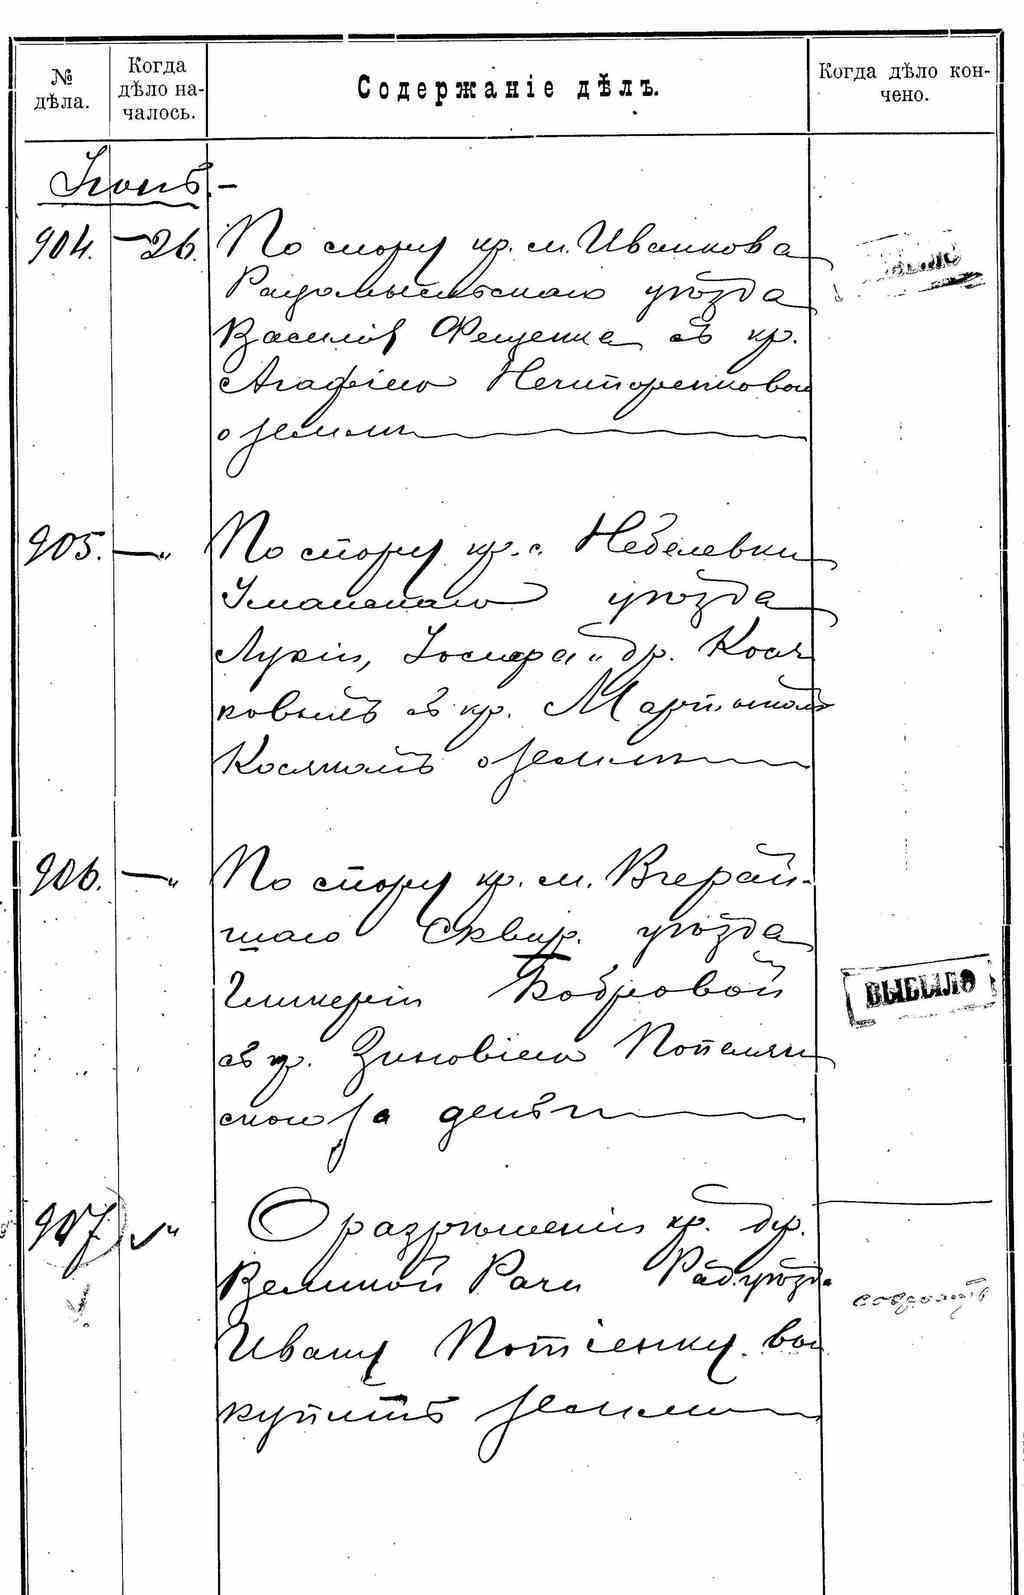 № дѣла.
Когда дѣло на-
чалось.
Содержаніе дѣлъ.
Когда дѣло кон-
чено.
Іюнь.-
904. — 26. По спору кр. м. Иванкова
Радомысльскаго уѣзда
Василія Фещенка съ кр.
Агафіею Нечипоренковой
о землѣ
905. — " По спору кр. с. Небелевки
Уманскаго уѣзда
Лукіи, Іосифа и др. Кося
ковымъ съ кр. Мартыномъ
Косякомъ о землѣ
906. — " По спору кр. м. Вчерай-
шаго Сквир. уѣзда
Гликеріи Бобровой
съ кр. Зиновіею Попелян
скою за деньги
907 " О разрѣшеніи кр. дер.
Великой Рачи Рад. уѣзда
Ивану Потіенку вы
купить землю
ВЫБЫЛО